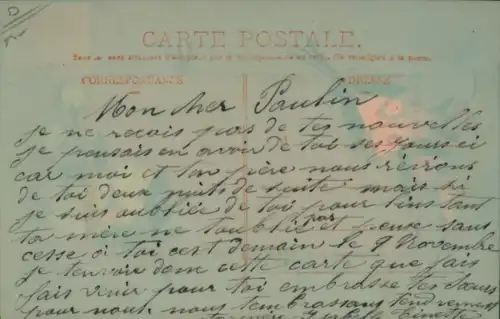 D
CARTE POSTALE.
CORRESPONDANCE ADRESSE
Mon cher Paulin
je ne recois pas de tes nouvelles
je pensais en avoir de toi ses jours ci
car moi et ton père nous révions
de toi deux nuits de suite mais si
je suis oubliée de toi pour l'ins tant
ta mère ne t'oublie pas et pense sans
cesse à toi cest demain le 9 Novembre
je t'envoie donc cette carte que j'ais
fais venir pour toi embrasse tes Sœurs
pour nous, nous t'embrassons tendrement